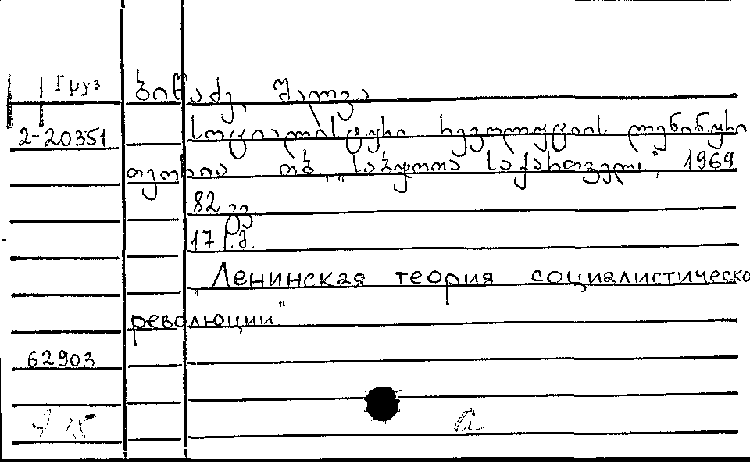 Груз
ბიწაძე, შალვა
2-20351 სოციალისტური რევოლუციის ლენინური
თეორია თბ „საბჭოთა საქართველო“, 1969
82 გვ
17 კ.
„Ленинская теория социалистическо
революции."
62903